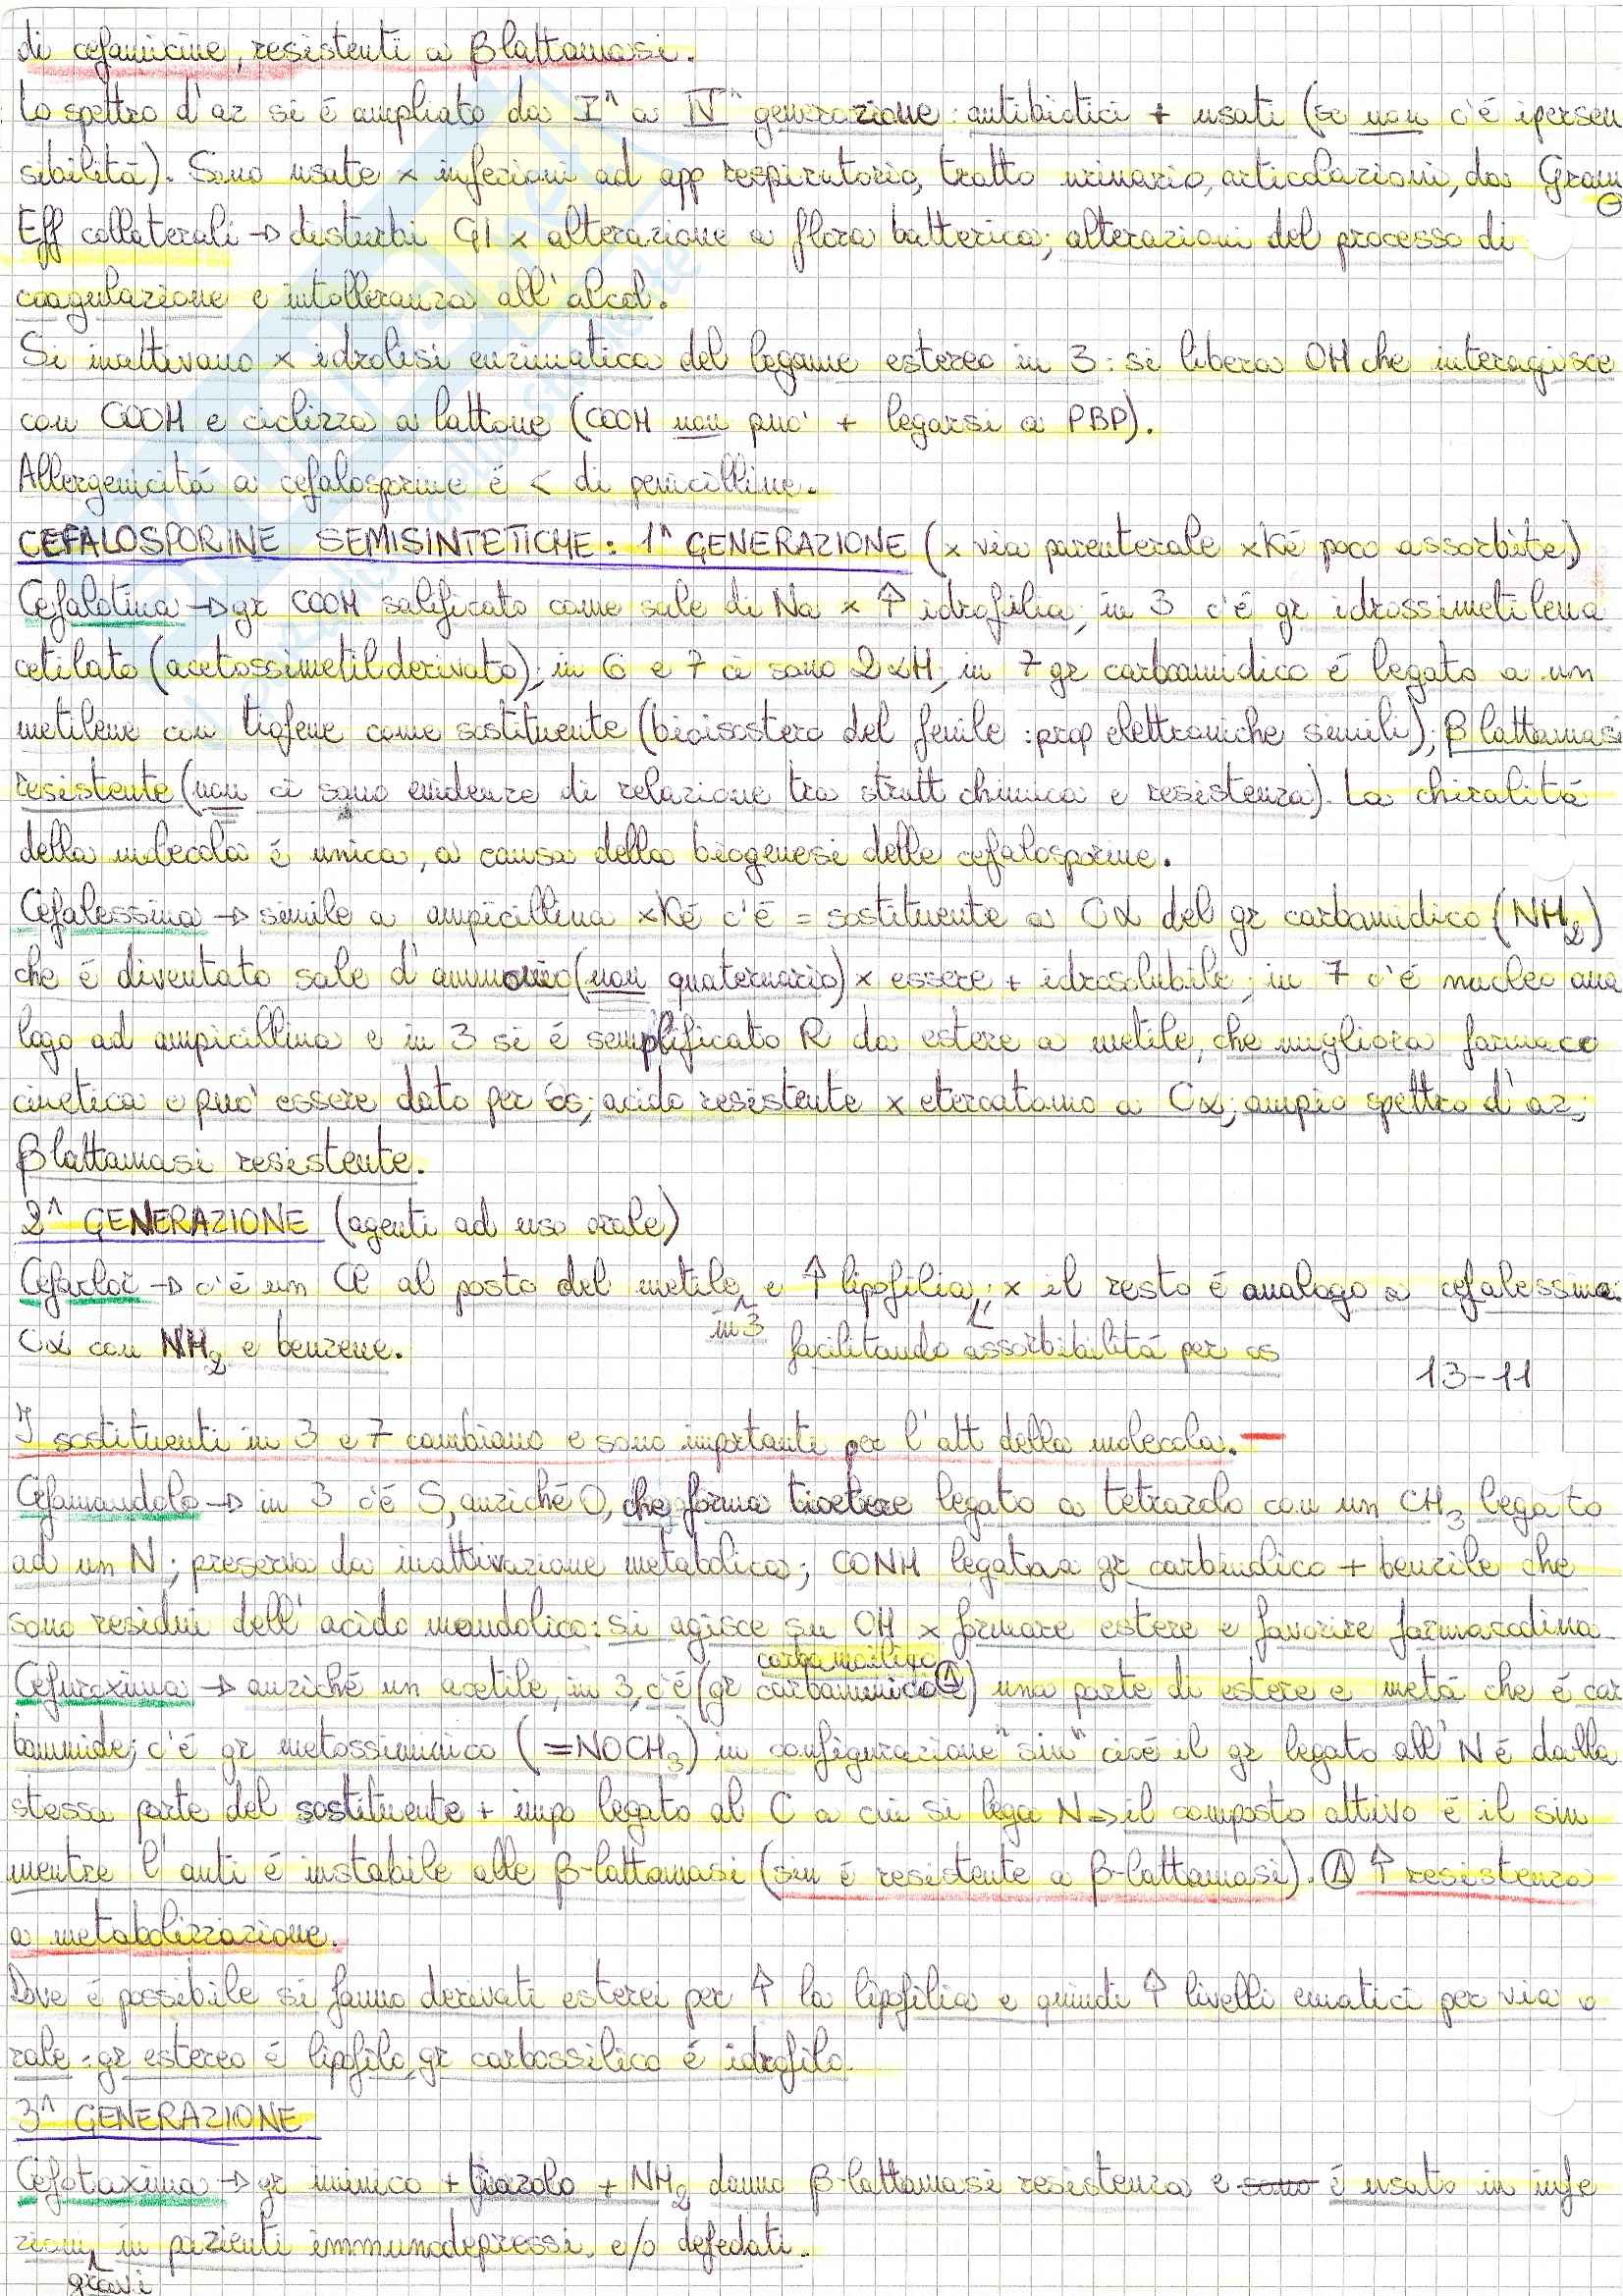 di cefamicine, resistenti a βlattamasi.
Lo spettro d'az si é ampliato da I^ a IV^ generazione: antibiotici + usati (se non c'é ipersen
sibilitá). Sono usate x infezioni ad app respiratorio, tratto urinario, articolazioni, da Gram ⊖
Eff collaterali → disturbi GI x alterazione a flora batterica; alterazioni del processo di
coagulazione e intolleranza all'alcol.
Si inattivano x idrolisi enzimatica del legame estereo in 3: si libera OH che interagisce
con COOH e ciclizza a lattone (COOH non puo' + legarsi a PBP).
Allergenicitá a cefalosporine é < di penicilline.
CEFALOSPORINE SEMISINTETICHE: 1^ GENERAZIONE (x via parenterale xké poco assorbite)
Cefalotina → gr COOH salificato come sale di Na x ↑ idrofilia; in 3 c'é gr idrossimetilena
cetilato (acetossimetilderivato); in 6 e 7 ci sono 2 αH, in 7 gr carboamidico é legato a un
metilene con tiofene come sostituente (bioisostero del fenile: prop elettroniche simili); βlattamasi
resistente (non ci sono evidenze di relazione tra strutt chimica e resistenza). La chiralitá
della molecola é unica, a causa della biogenesi delle cefalosporine.
Cefalessina → simile a ampicillina xké c'é = sostituente a Cα del gr carbamidico (NH2)
che é diventato sale d'ammonio (non quaternario) x essere + idrosolubile; in 7 c'é nucleo ana
logo ad ampicillina e in 3 si é semplificato R da estere a metile, che migliora farmaco
cinetica e puo' essere dato per os; acido resistente x eteroatomo a Cα; ampio spettro d'az;
βlattamasi resistente.
2^ GENERAZIONE (agenti ad uso orale)
Cefaclor → c'é un Cl al posto del metile in 3 e ↑ lipofilia, facilitando assorbibilitá per os; x il resto é analogo a cefalessina:
Cα con NH2 e benzene.
13-11
I sostituenti in 3 e 7 cambiano e sono importanti per l'att della molecola.
Cefamandolo → in 3 c'é S, anziché O, che forma tioetere legato a tetrazolo con un CH3 legato
ad un N; preserva da inattivazione metabolica; CONH legata a gr carbinolico + benzile che
sono residui dell'acido mandolico: si agisce su OH x formare estere e favorire farmacodina
Cefuroxima → anziché un acetile, in 3, c'é (gr carbamoilico Ⓐ) una parte di estere e metá che é car
bammide; c'é gr metossiminico (=NOCH3) in configurazione "sin" cioé il gr legato all'N é dalla
stessa parte del sostituente + impo legato al C a cui si lega N ⇒ il composto attivo é il sin
mentre l'anti é instabile alle β-lattamasi (sin é resistente a β-lattamasi). Ⓐ ↑ resistenza
a metabolizzazione.
Dove é possibile si fanno derivati esterei per ↑ la lipofilia e quindi ↑ livelli ematici per via o
rale: gr estereo é lipofilo, gr carbossilico é idrofilo.
3^ GENERAZIONE
Cefotaxima → gr iminico + tiazolo + NH2 danno β-lattamasi resistenza e é usato in infe
zioni gravi in pazienti immunodepressi e/o defedati.